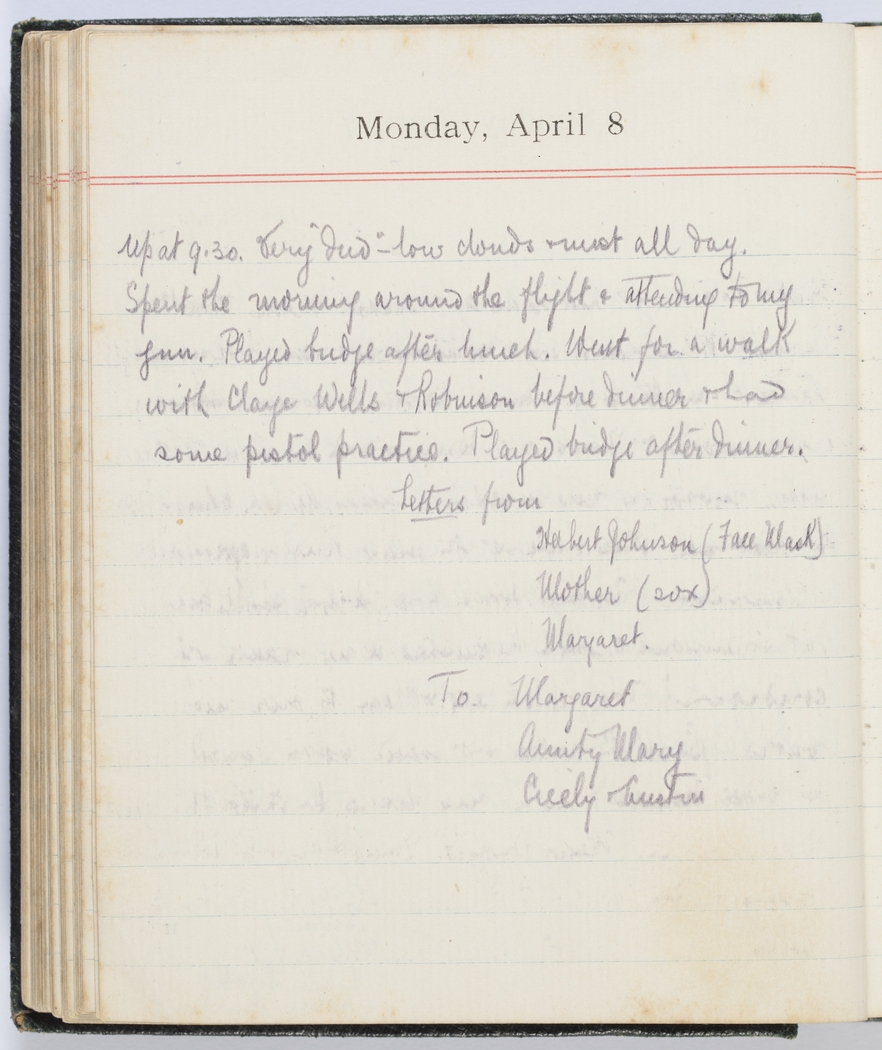 Monday, April 8
Up at 9.30. Very "dud" - low clouds & mist all day.
Spent the morning around the flight & attending to my
gun. Played bridge after lunch. Went for a walk
with Claye Wells & Robinson before dinner & had
some pistol practice. Played bridge after dinner.
Letters from
Herbert Johnson (Face Mask)
Mother (20x)
Margaret.
To. Margaret
Aunty Mary
Cicely & Austin